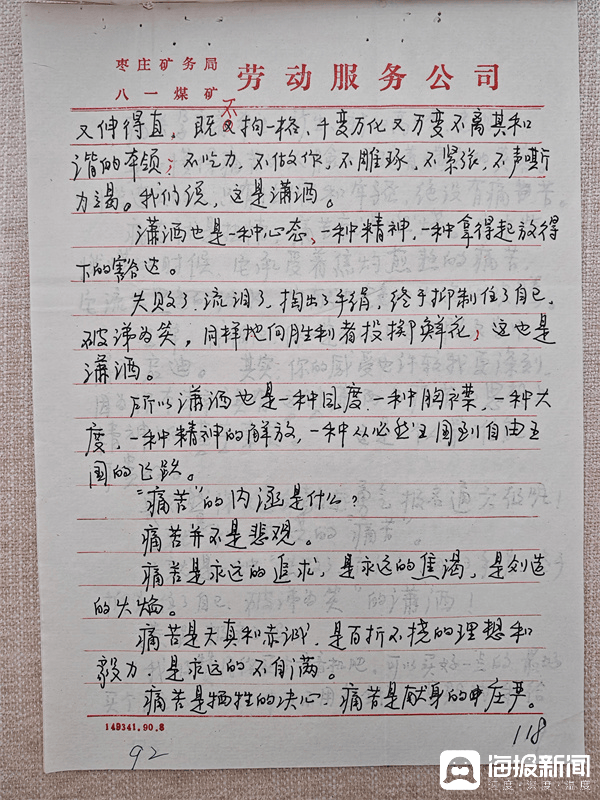 枣庄矿务局
八一煤矿
劳动服务公司
又伸得直，既不拘一格、千变万化又万变不离其和
谐的本领；不吃力，不做作，不雕琢，不紧张，不声嘶
力竭。我们说，这是潇洒。
潇洒也是一种心态，一种精神，一种拿得起放得
下的豁达。
失败了，流泪了，掏出了手绢，终于抑制住了自己，
破涕为笑，同样地向胜利者投掷鲜花；这也是
潇洒。
所以潇洒也是一种风度、一种胸襟，一种大
度，一种精神的解放，一种从必然王国到自由王
国的飞跃。
“痛苦”的内涵是什么？
痛苦并不是悲观。
痛苦是永远的追求，是永远的焦渴，是创造
的火焰。
痛苦是天真和赤诚，是百折不挠的理想和
毅力，是永远的不自满。
痛苦是牺牲的决心，痛苦是献身的庄严。
149341.90.8
92
118
海报新闻
速度·深度·温度